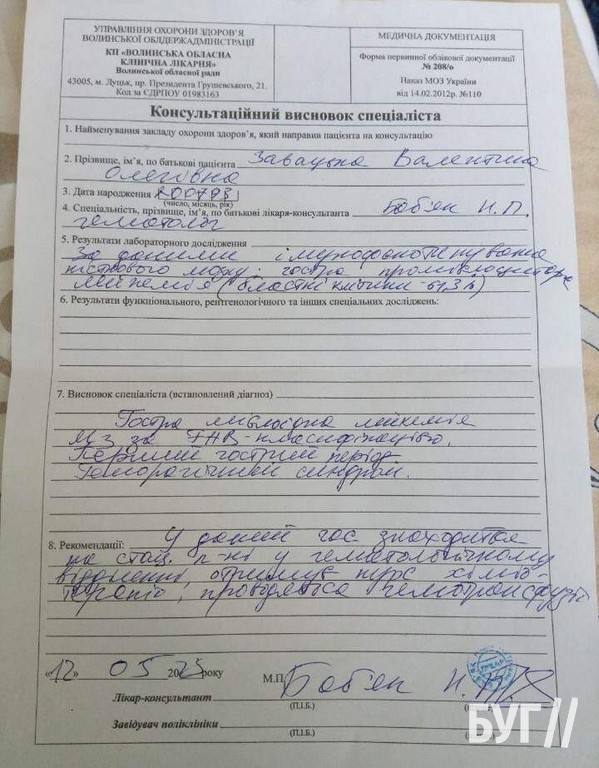 УПРАВЛІННЯ ОХОРОНИ ЗДОРОВ'Я
ВОЛИНСЬКОЇ ОБЛДЕРЖАДМІНІСТРАЦІЇ
КП «ВОЛИНСЬКА ОБЛАСНА
КЛІНІЧНА ЛІКАРНЯ»
Волинської обласної ради
43005, м. Луцьк, пр. Президента Грушевського, 21.
Код за ЄДРПОУ 01983163
МЕДИЧНА ДОКУМЕНТАЦІЯ
Форма первинної облікової документації
№ 208/о
Наказ МОЗ України
від 14.02.2012р. №110
Консультаційний висновок спеціаліста
1. Найменування закладу охорони здоров'я, який направив пацієнта на консультацію
2. Прізвище, ім'я, по батькові пацієнта Завацька Валентина
Олегівна
3. Дата народження
(число, місяць, рік)
4. Спеціальність, прізвище, ім'я, по батькові лікаря-консультанта Боб'як Н. П.
гематолог
5. Результати лабораторного дослідження
За даними імунофенотипування
кісткового мозку гостра
лейкемія (бластні клітини -
6. Результати функціонального, рентгенологічного та інших спеціальних досліджень:
7. Висновок спеціаліста (встановлений діагноз)
Гостра мієлоїдна лейкемія
М3 за FAB-класифікацією.
Перший гострий період.
Геморагічний синдром.
8. Рекомендації: У даний час знаходиться
на стац. л-ні у гематологічному
відділенні, отримує курс хіміо-
терапії, проводяться гемотрансфузії
«12» 05 2023 року
М.П. Боб'як Н.
Лікар-консультант
(П.І.Б.)
Завідувач поліклініки
(П.І.Б.)
БУГ//